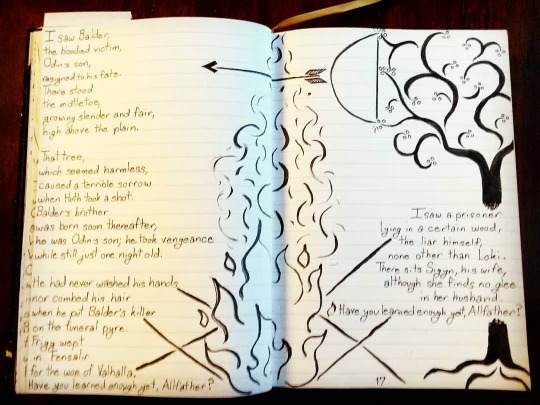 I saw Balder,
the blooded victim,
Odin's son,
resigned to his fate.
There stood
the mistletoe,
growing slender and fair,
high above the plain.
That tree,
which seemed harmless,
caused a terrible sorrow
when Hoth took a shot.
Balder's brother
was born soon thereafter;
he was Odin's son; he took vengeance
while still just one night old.
He had never washed his hands
nor combed his hair
when he put Balder's killer
on the funeral pyre.
Frigg wept
in Fensalir
for the woe of Valhalla.
Have you learned enough yet, Allfather?
I saw a prisoner
lying in a certain wood,
the liar himself,
none other than Loki.
There sits Sigyn, his wife,
although she finds no glee
in her husband.
Have you learned enough yet, Allfather?
17